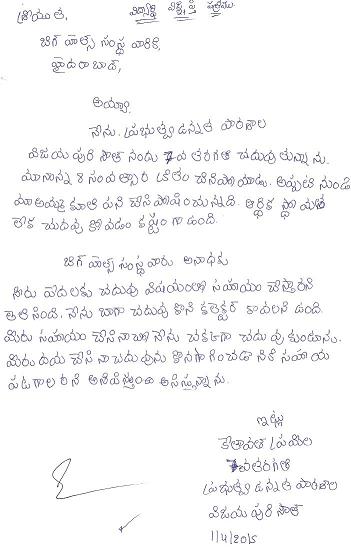 శ్రీయుత, విద్యార్థి విజ్ఞప్తి పత్రము
బిగ్ హెల్ప్ సంస్థ వారికి,
హైదరాబాద్,
అయ్యా.
నేను. ప్రభుత్వ ఉన్నత పాఠశాల
విజయ పురి సౌత్ నందు 7వ తరగతి చదువుతున్నాను.
మా నాన్న 8 సంవత్సరాల క్రితం చనిపోయాడు. అప్పటి నుండి
మా అమ్మ కూలి పని చేసి పోషించుచున్నది. ఆర్థిక స్థోమత
లేక చదువు కోవడం కష్టంగా ఉంది.
బిగ్ హెల్ప్ సంస్థ వారు అనాథలకు
నిరు పేదలకు చదువు విషయంలో సహాయం చేస్తారని
తెలిసింది. నేను బాగా చదువు కొని కలెక్టర్ కావాలని ఉంది.
మీరు సహాయం చేసినచో నేను చక్కగా చదువు కుంటాను.
మీరు దయ చేసి నా చదువును కొనసాగించడానికి సహాయ
పడగలరని ఆశిస్తున్నాను.
ఇట్లు
ప్రమీల
7వ తరగతి
ప్రభుత్వ ఉన్నత పాఠశాల
విజయ పురి సౌత్
1/4/2015